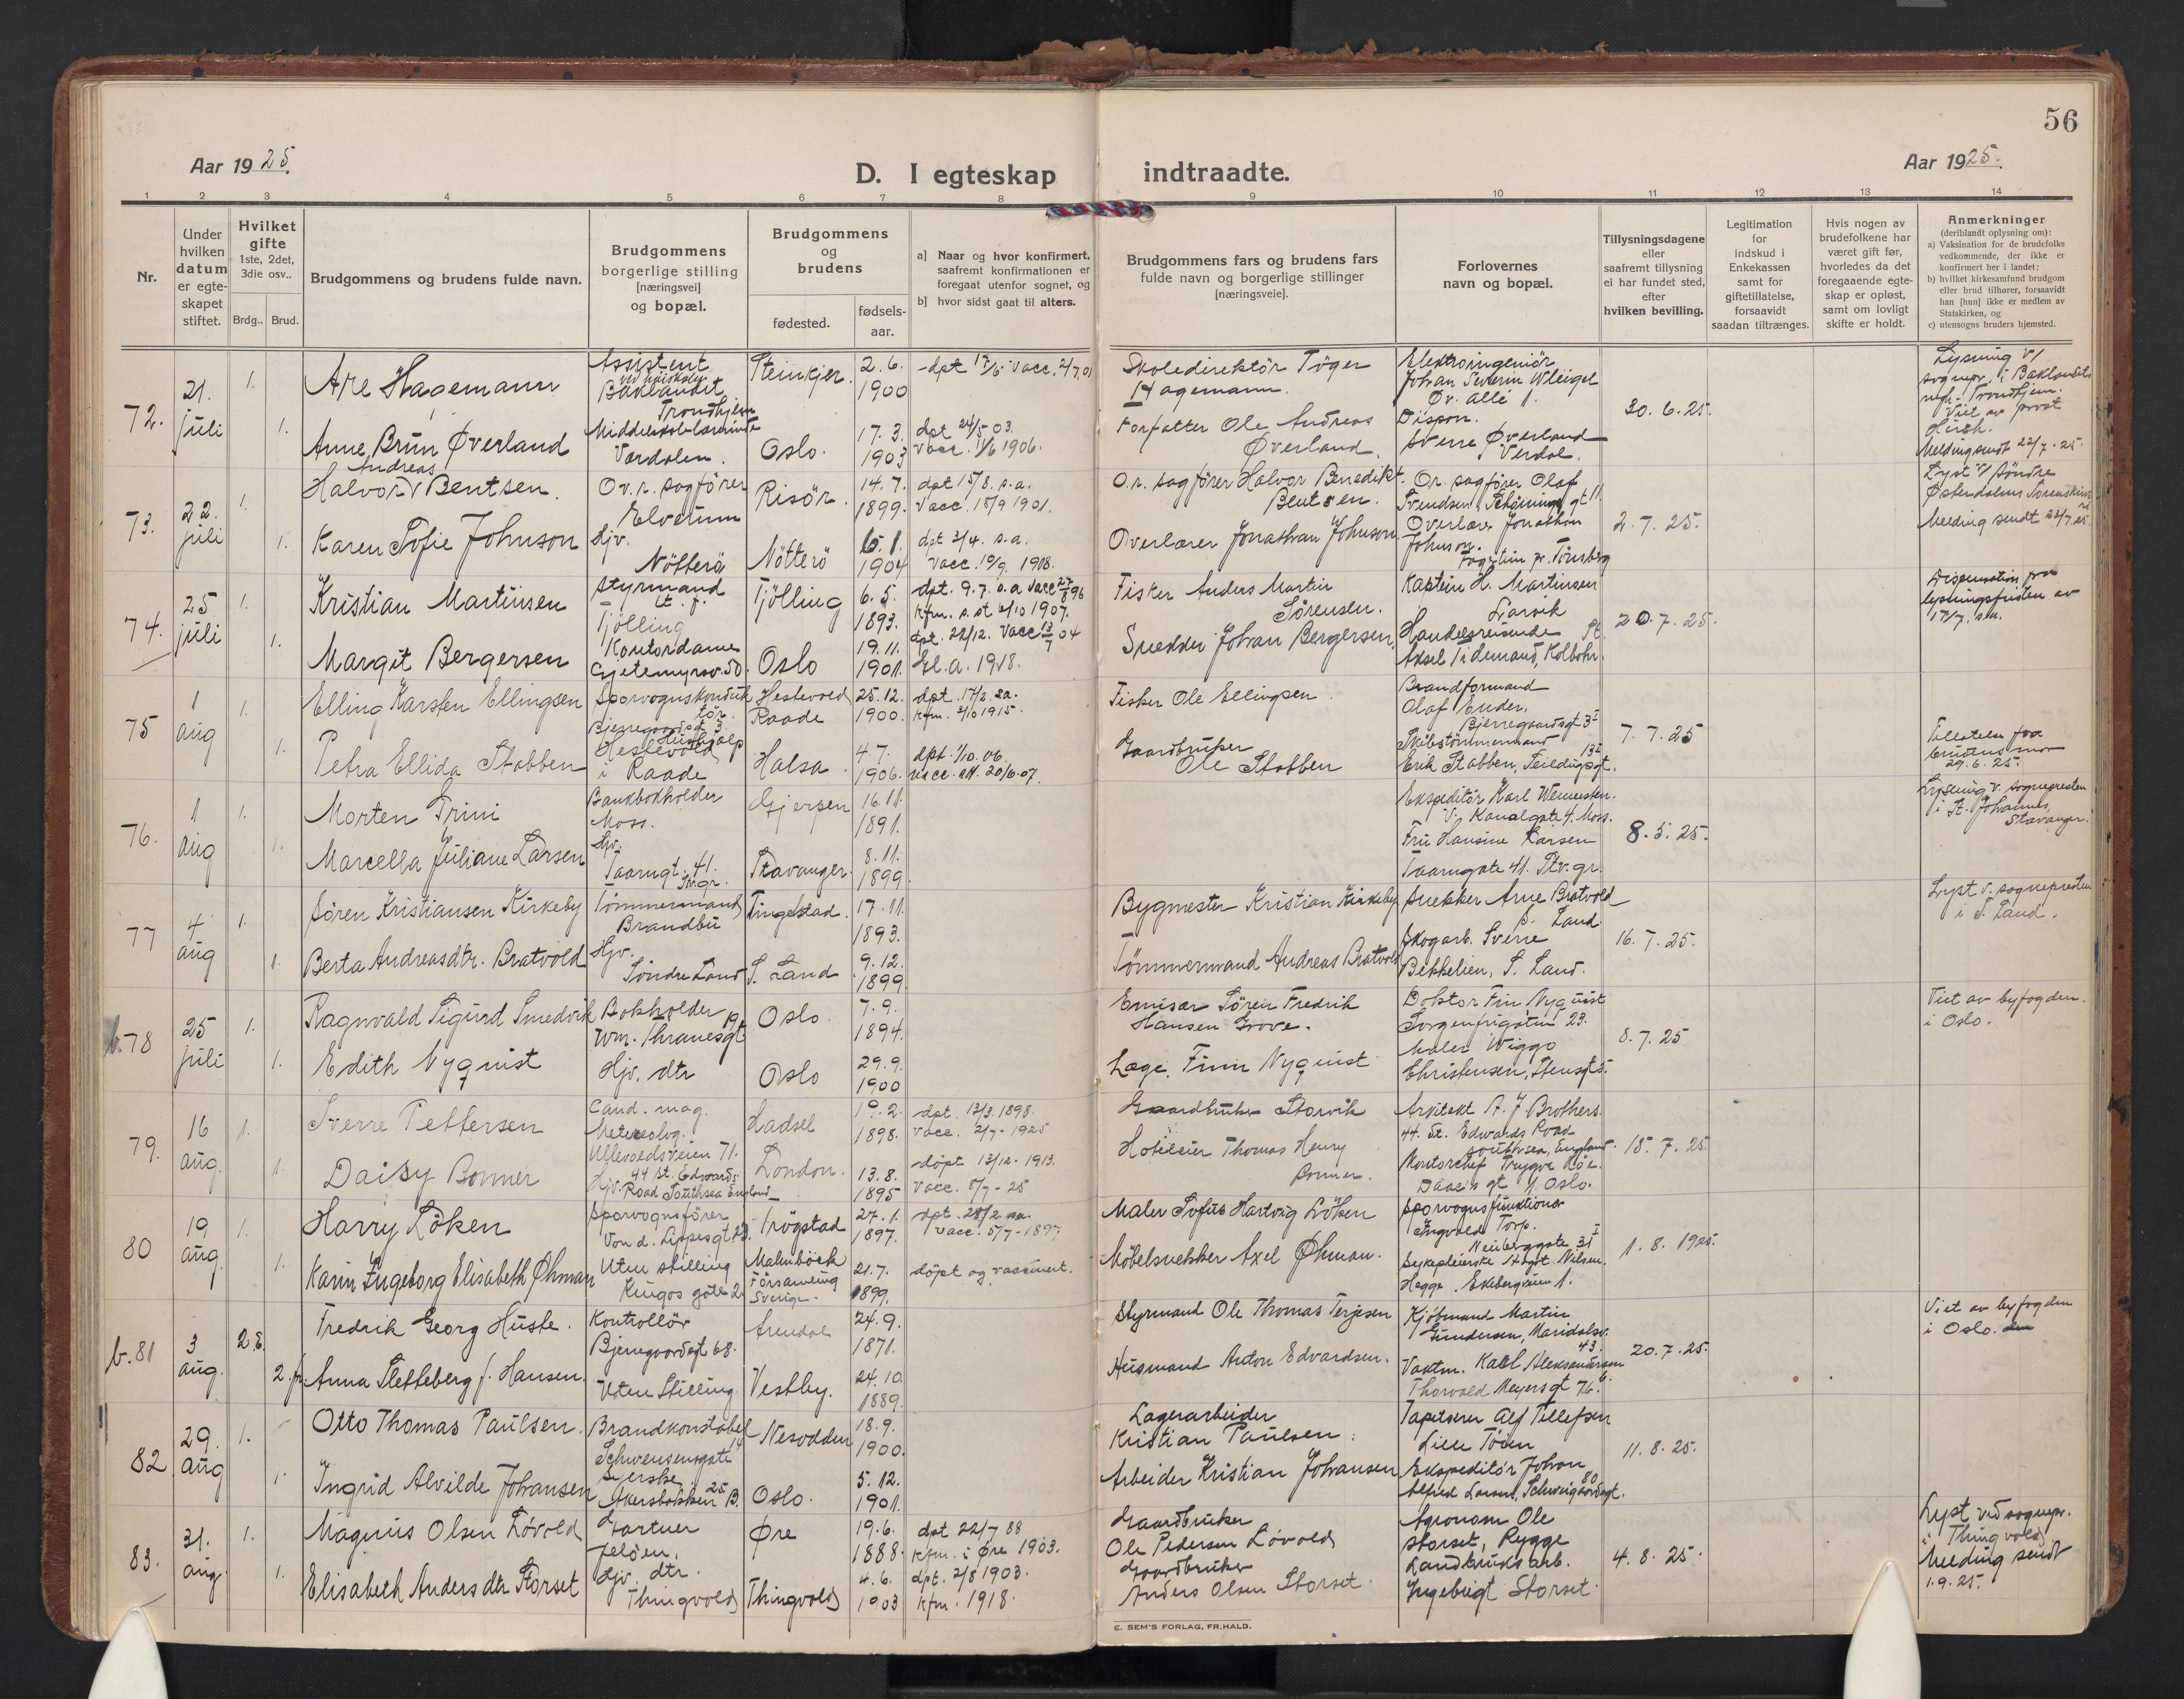 56
Aar 1925.
D. I egteskap indtraadte.
Aar 1925.
1 2 3 4 5 6 7 8 9 10 11 12 13 14
Nr.
Under hvilken datum er egteskapet stiftet.
Hvilket gifte 1ste, 2det, 3die osv..
Brdg.. Brud.
Brudgommens og brudens fulde navn.
Brudgommens borgerlige stilling [næringsvei] og bopæl.
Brudgommens og brudens
fødested.
fødsels-aar.
a] Naar og hvor konfirmert, saafremt konfirmationen er foregaat utenfor sognet, og
b] hvor sidst gaat til alters.
Brudgommens fars og brudens fars fulde navn og borgerlige stillinger [næringsveie].
Forlovernes navn og bopæl.
Tillysningsdagene eller saafremt tillysning ei har fundet sted, efter hvilken bevilling.
Legitimation for indskud i Enkekassen samt for giftetillatelse, forsaavidt saadan tiltrænges.
Hvis nogen av brudefolkene har været gift før, hvorledes da det foregaaende egteskap er opløst, samt om lovligt skifte er holdt.
Anmerkninger
(deriblandt oplysning om):
a) Vaksination for de brudefolks vedkommende, der ikke er konfirmert her i landet;
b) hvilket kirkesamfund brudgom eller brud tilhører, forsaavidt han [hun] ikke er medlem av Statskirken, og
c) utensogns bruders hjemsted.
72. 21. juli 1. Are Hagemann Assistent ved høiskolen Baklandet Trondhjem Steinkjer. 2.6. 1900 Skoledirektör Töger Hagemann. Elektroingeniör Johan Severin 30.6.25.
1. Anne Brun Øverland Vardalen. Oslo. 17.3. 1903 dpt 24/5 03. vacc. 11/6 1906. Forfatter Ole Andreas Øverland. Dispon. Sverre Øverland Verdal.
Meldingsendt 22/7-25.
73. 22. juli Halvor Andreas Bentsen. Ov.r. sagförer Elverum Risör. 14.7. 1899. dpt 15/8. s.a. Vacc. 15/9 1901. O.r. sagförer Halvor Benedikt Bentsen. Or. sagförer Olaf Svendsen, 2.7.25.
Lyst v/ Söndre Østerdalens
1. Karen Sofie Johnson Hjv. Nötterö Nötterö 6.1. 1904 dpt 3/4. s.a. vacc. 19/9. 1918. Overlærer Jonathan Johnson. Overlærer Jonathan Johnson. pr. Tönsberg
Melding sendt 22/7.25.
74. 25 juli 1. Kristian Martinsen Styrmand Tjölling Tjölling 6.5. 1893. dpt. 9.7. s.a Kfm. 1907. Fisker Anders Martin Sörensen. Kaptein H. Martinsen Larvik 20.7.25.
Dispensation fra lysningsfristen av 17/7. s.a.
1. Margit Bergersen Kontordame Gjetemyrsv. 50. Oslo 19.11. 1901. dpt. 22/12. Vacc 13/7 04 Gl.a. 1918. Snedker Johan Bergersen. Handelsreisende Aksel Tidemand, Kolbotn.
75 1 aug 1. Elling Karsten Ellingsen Sporvognskonduktör. Bjerregaardsgt 3 Hestevold Raade 25.12. 1900. dpt. 17/2. s.a. kfm. 3/10 1915. Fisker Ole Ellingsen Brandformand Olaf Ender. Bjerregaardsgt 3 7.7.25
1. Petra Ellida Stobben Hushjælp Hestevold i Raade Halsa. 4.7. 1906. dpt. 1/10. 06. Gaardbruker Ole Stobben Skibstömmermand Erik Stobben,
Tillatelse fra brudens mor 29.6.25.
76. 1 aug 1. Morten Trini Bankbokholder Moss. Gjerpen 16.11. 1891. Ekspeditör Karl V. Kanalgate 4. Moss. 8.5.25.
Lysning v. sognepresten i St. Johannes, Stavanger.
1. Marcella Juliane Larsen Hjv. Taarngt. 41. Stvgr. Stavanger. 8.11. 1899. Fru Hansine Larsen Taarngate 41. Stv.gr.
77 4 aug 1. Sören Kristiansen Kirkeby Tömmermand Brandbu Tingelstad. 17.11. 1893. Bygmester Kristian Kirkeby Snekker Arne Bratvold S. Land 16.7.25.
Lyst v. sognepresten i S. Land.
1. Berta Andreasdtr. Bratvold Hjv. Söndre Land S. Land 9.12. 1899. Tömmermand Andreas Bratvold Skogarb. Sverre Bekkelien, S. Land.
b.78 25 juli 1. Ragnvald Sigurd Smedvik Bokholder Wm. Thranesgt 19 Oslo. 7.9. 1894. Emisær Sören Fredrik Hansen Grove. Doktor Finn Nyquist Sorgenfrigaten 23. 8.7.25
Viet av byfogden. i Oslo.
1. Edith Nyquist Hjv. dtr Oslo 29.9. 1900 Læge. Finn Nyquist Maler Wiggo Christensen, Stensgt 5.
79. 16 aug. 1. Sverre Pettersen Cand. mag. Meteorolog. Ullevoldsveien 71. Hadsel 19.2. 1898. dpt. 13/3. 1898. vacc. 2/7-1925 Gaardbruker Storvik Arkitekt A. J Brothers. 44. St. Edwards Road Southsea, England. 18.7.25.
1. Daisy Bonner Hjv. 44 St. Edwards Road Southsea England London. 13.8. 1895 döpt 13/12-1913. vacc. 8/7-25 Hoteleier Thomas Henry Bonner. Kontorchef Trygve Daaes gt 1, Oslo.
80 19 aug. 1. Harry Löken Sporvognsförer Von d. Lippesgt 23. Trögstad 27.1. 1897. dpt. 28/2 vacc. 5/7-1897 Maler Sofus Hartvig Löken Sporvognsfunktionær Ingvald Torp. 1.8.1925.
1. Karin Ingeborg Elisabeth Øhman Uten stilling Kingos gate 2. Malmbäck Församling Sverige. 21.7. 1899. döpt og vaccinert. Möbelsnekker Axel Øhman. Sykepleierske Nilsen. Hagge. Ekebergveien 1.
b.81 3 aug. 2 E. Fredrik Georg Huste. Kontrollör Bjerregaardsgt 68. Arendal 24.9. 1871. Styrmand Ole Thomas Terjesen Kjöbmand Martin Gundersen, Maridalsv. 43. 20.7.25.
Viet av byfogden i Oslo.
2. fr. Anna Sletteberg f. Hansen. Uten Stilling. Vestby. 24.10. 1889. Husmand Anton Edvardsen. Vaktm. Karl Aleksandersen Thorvald Meyersgt 76.
82 29. aug 1. Otto Thomas Paulsen. Brandkonstabel Schwensensgate 14 Nesodden 18.9. 1900. Lagerarbeider Kristian Paulsen. Tapetserer Alf Tellefsen Lille Töien 11.8.25.
1. Ingrid Alvilde Johansen Syerske Akersbakken 25 B. Oslo. 5.12. 1901. Arbeider Kristian Johansen Ekspeditör Johan Alfred Larsen, Schweigaardsgt. 80
83. 31. aug. 1. Magnus Olsen Lövold Gartner Jelöen. Øre 19.6. 1888. dpt 22/7 88 Kfm. i Øre 1903. Gaardbruker Ole Pedersen Lövold Agronom Ole Storset, Rygge 4.8.25.
Lyst ved sognepr. i Thingvold
1. Elisabeth Andersdtr Storset Hjv. dtr. Thingvold Thingvold 4.6. 1903 dpt. 2/8 1903. kfm. 1918. Gaardbruker Anders Olsen Storset. Landbruksarb. Ingebrigt Storset.
Melding sendt 1.9.25.
E. SEM'S FORLAG, FR.HALD.